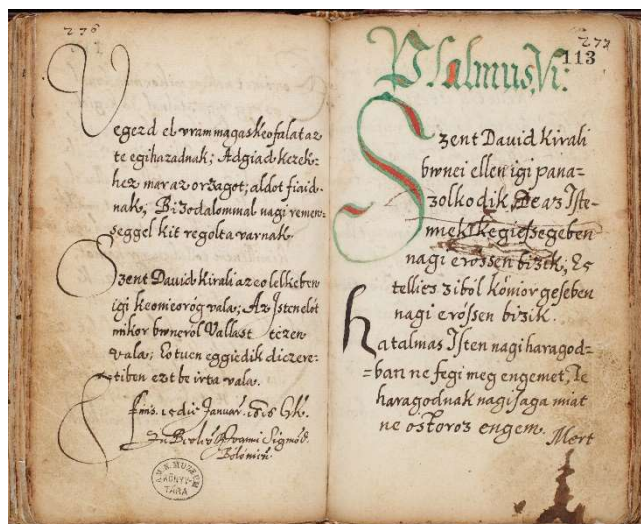 276
Vegezd el vram magas keofalat az
te egihazadnak; Adgiad kezek-
hez mar az orzagot; aldot fiaid-
nak; Bizodalommal nagi remen-
seggel kit regolta varnak
Szent Dauid kirali az eo lelkeben
igi keonieorög vala; Az Isten elöt
mikor bwneröl Vallast tezen
vala; Eotuen eggiedik diczere-
tiben ezt be irta vala.
Finis. 15 die Januar.
A. M. N. MUZEUM
KÖNYV-
TÁRA
277
113
Psalmus. Vi:
Szent Dauid kirali
bwnei ellen igi pana-
zolkodik, De az Iste-
nnek kegiessegeben
nagi erössen bizik; Es
tellies ziböl könior geseben
nagi erössen bizik.
hatalmas Isten nagi haragod-
=ban ne fegi meg engemet, Te
haragodnak nagi saga miat
ne ostoroz engem.
Mert